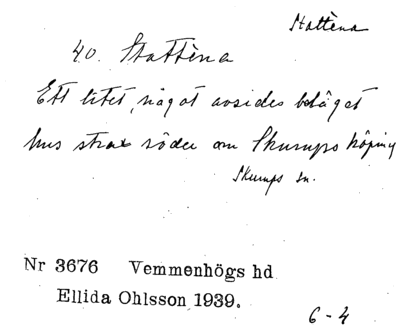 Stattèna
40. Stattèna
Ett litet, något avsides beläget
hus strax söder om Skurups köping
Skurups sn.
Nr 3676 Vemmenhögs hd
Ellida Ohlsson 1939.
6-4